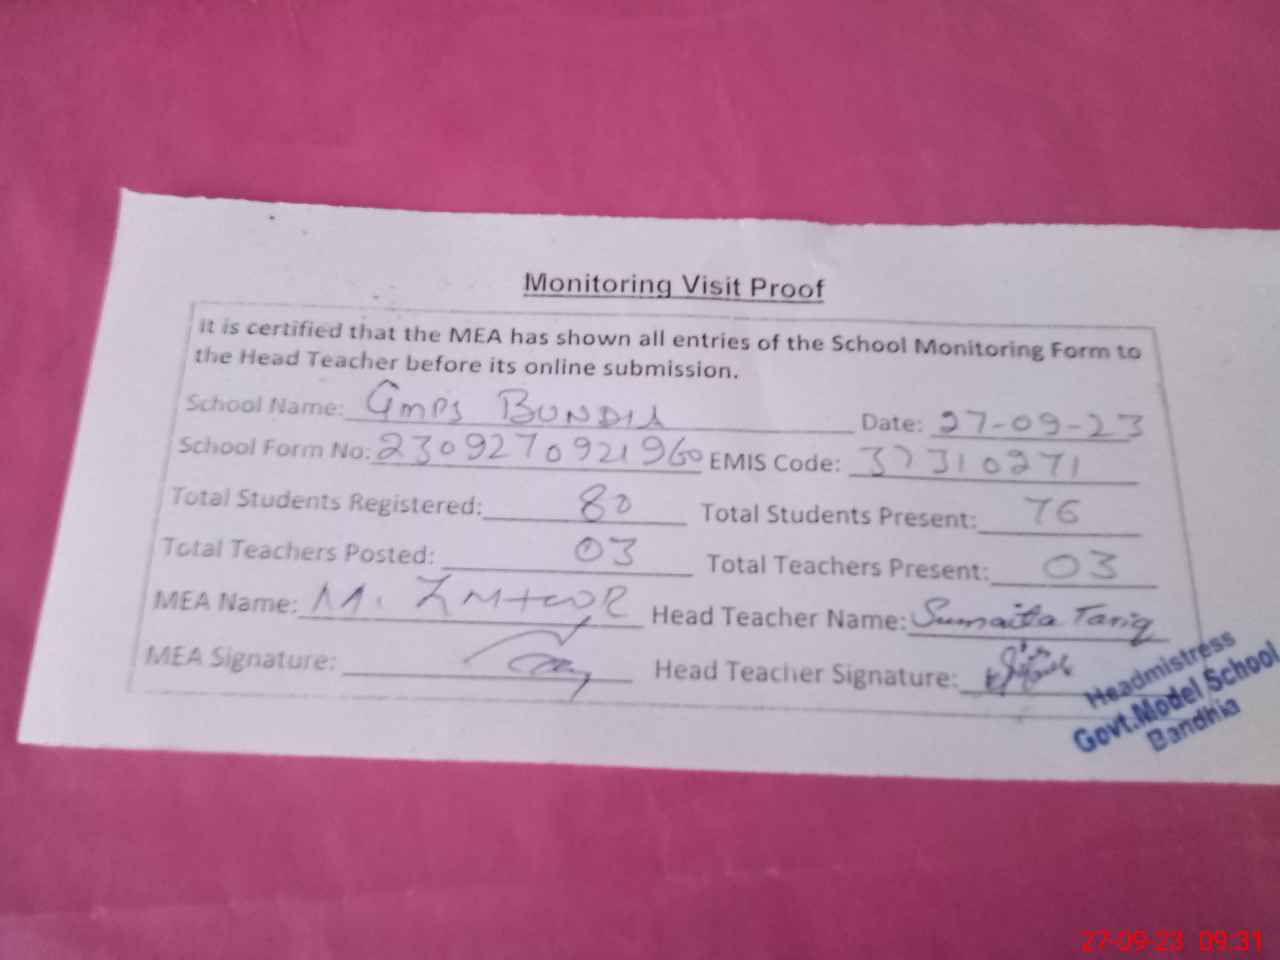 Monitoring Visit Proof
It is certified that the MEA has shown all entries of the School Monitoring Form to
the Head Teacher before its online submission.
School Name: GMPS BUNDIA Date: 27-09-23
School Form No: 2309270921960 EMIS Code: 37310271
Total Students Registered: 80 Total Students Present: 76
Total Teachers Posted: 03 Total Teachers Present: 03
MEA Name: M. Head Teacher Name: Sumaita Tariq
MEA Signature: Head Teacher Signature:
Headmistress
Govt.Model School
Bandhia
27-09-23 09:31